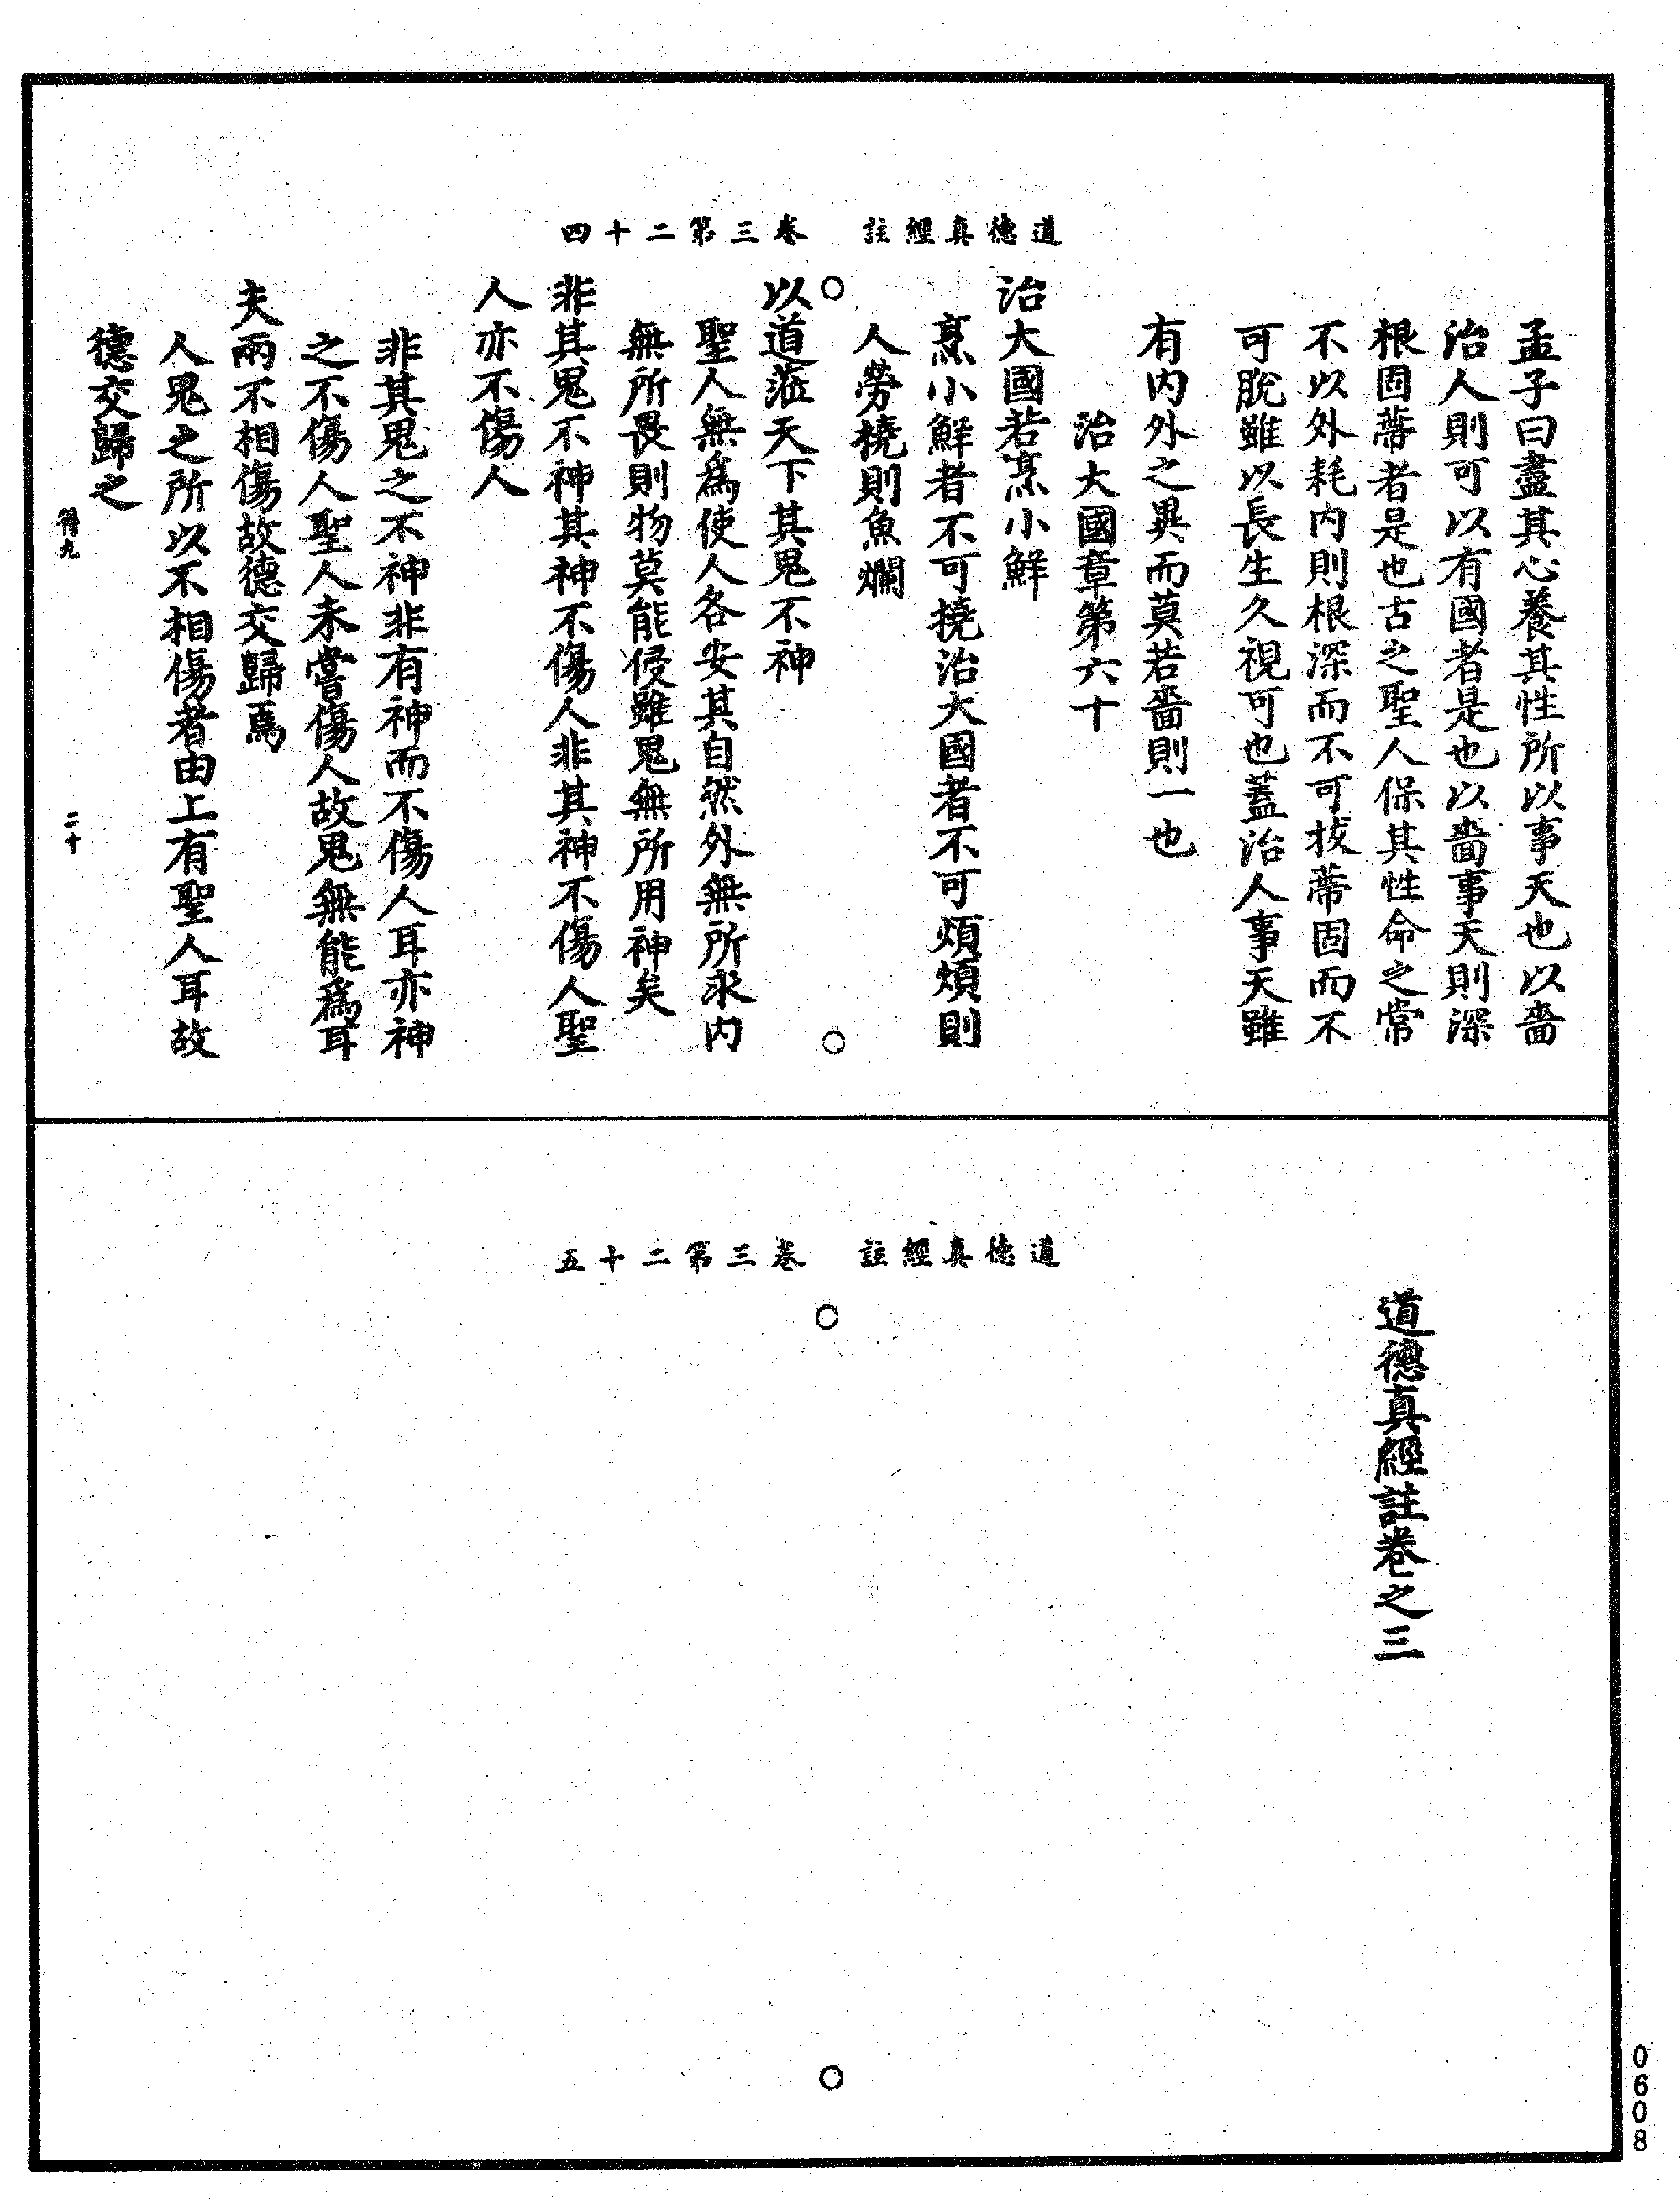 道德真經註　卷三第二十四
孟子曰盡其心養其性所以事天也以嗇
治人則可以有國者是也以嗇事天則深
根固蔕者是也古之聖人保其性命之常
不以外耗内則根深而不可拔蔕固而不
可脫雖以長生久視可也蓋治人事天雖
有内外之異而莫若嗇則一也
治大國章第六十
治大國若烹小鮮
烹小鮮者不可撓治大國者不可煩煩則
人勞撓則魚爛
以道蒞天下其鬼不神
聖人無為使人各安其自然外無所求内
無所畏則物莫能侵雖鬼無所用神矣
非其鬼不神其神不傷人非其神不傷人聖
人亦不傷人
非其鬼之不神非有神而不傷人耳亦神
之不傷人聖人未嘗傷人故鬼無能為耳
夫兩不相傷故德交歸焉
人鬼之所以不相傷者由上有聖人耳故
德交歸之
符九
二十
道德真經註　卷三第二十五
道德真經註卷之三
0608